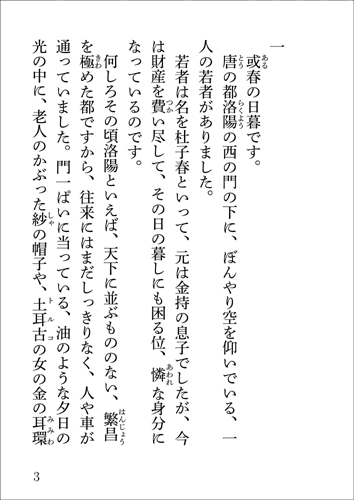 一
或春の日暮です。
唐の都洛陽の西の門の下に、ぼんやり空を仰いでいる、一
人の若者がありました。
若者は名を杜子春といって、元は金持の息子でしたが、今
は財産を費い尽して、その日の暮しにも困る位、憐な身分に
なっているのです。
何しろその頃洛陽といえば、天下に並ぶもののない、繁昌
を極めた都ですから、往来にはまだしっきりなく、人や車が
通っていました。門一ぱいに当っている、油のような夕日の
光の中に、老人のかぶった紗の帽子や、土耳古の女の金の耳環
3